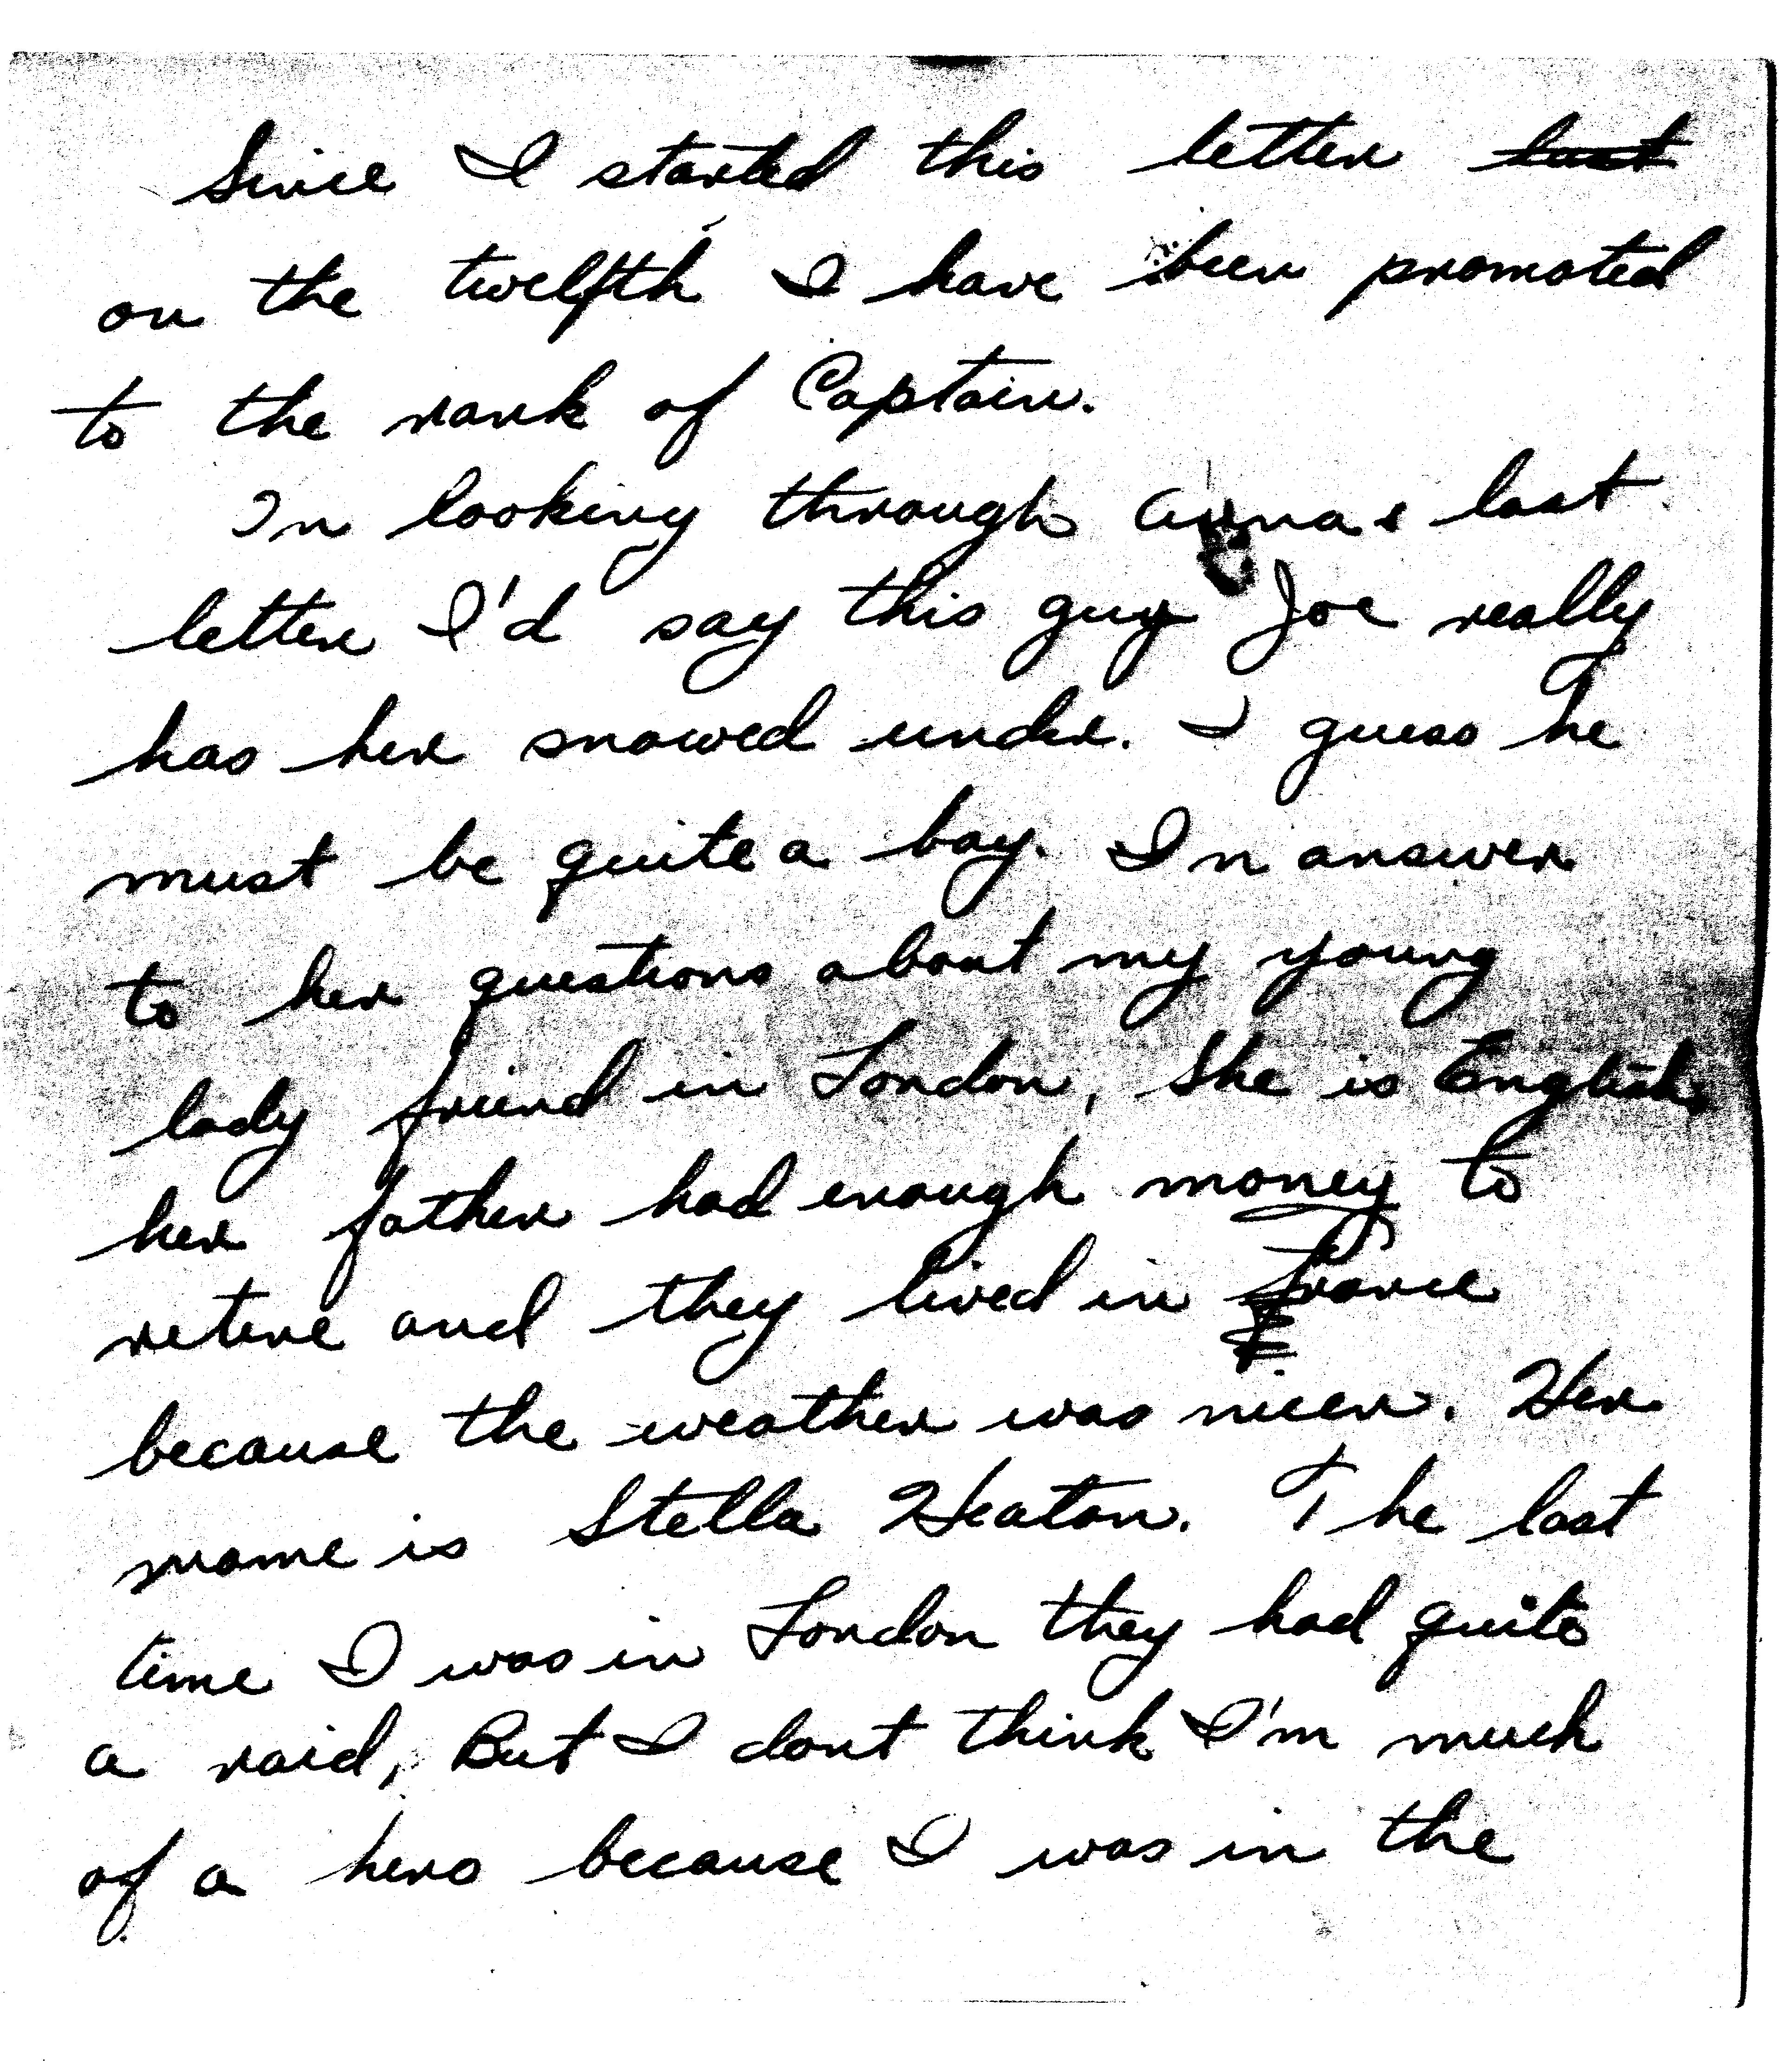 Since I started this letter last
on the twelfth I have been promoted
to the rank of Captain.
In looking through Annas last
letter I'd say this guy Joe really
has her snowed under. I guess he
must be quite a boy. In answer
to her questions about my young
lady friend in London, She is English
her father had enough money to
retire and they lived in France
because the weather was nicer. Her
name is Stella Heaton. The last
time I was in London they had quite
a raid, But I dont think I'm much
of a hero because I was in the